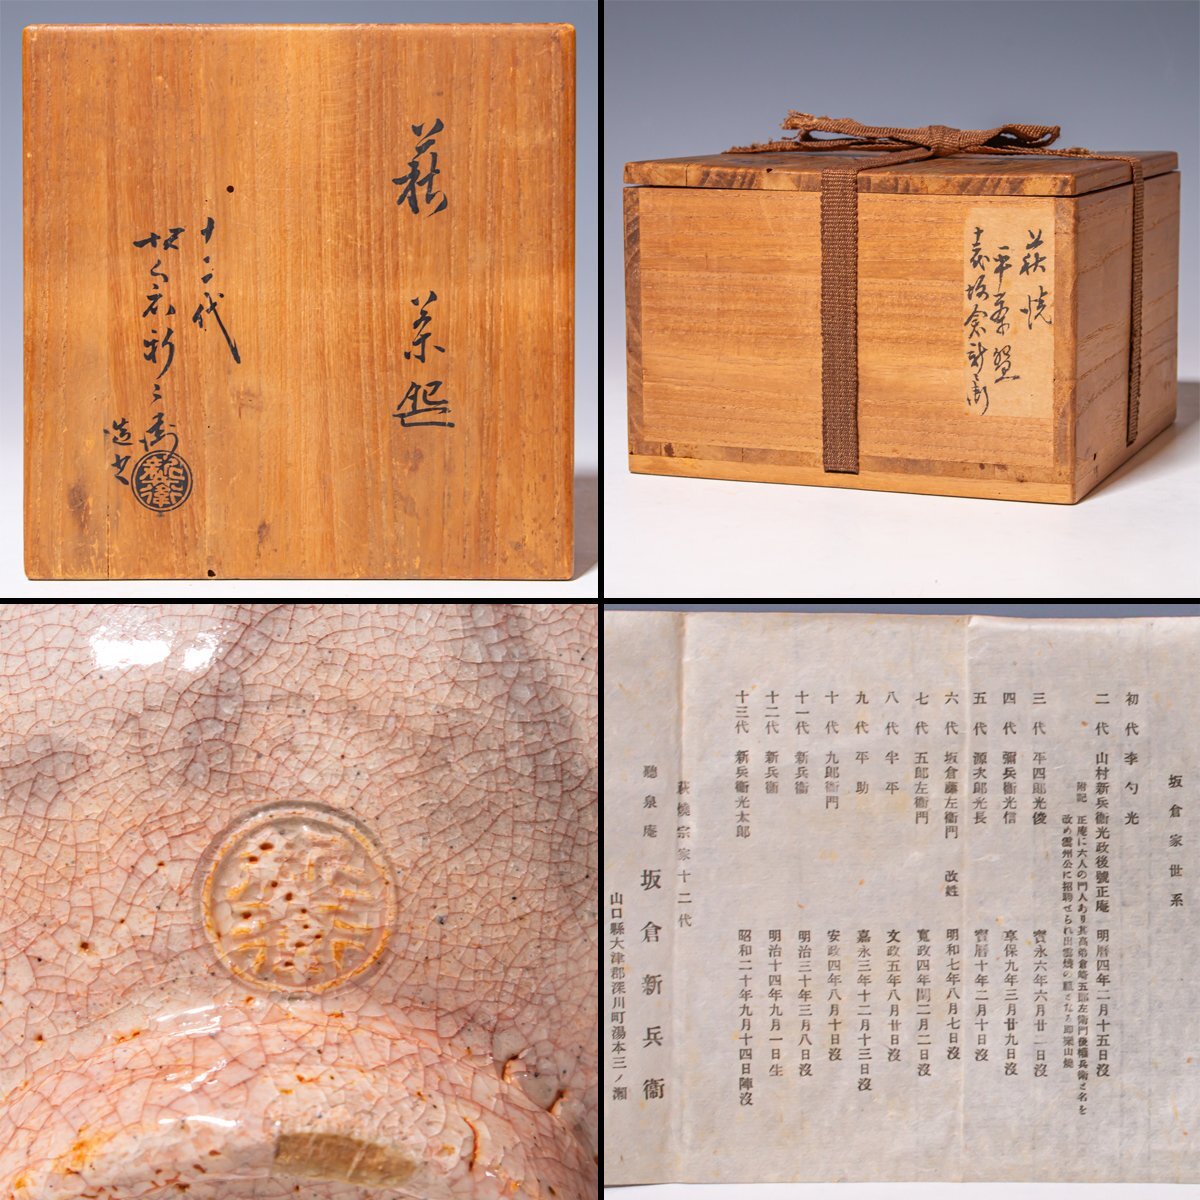 萩 茶盌
十二代
坂倉新兵衛
造之
新兵衛
萩焼
平茶盌
十二代坂倉新兵衛
坂倉家世系
初代 李勺光
二代 山村新兵衞光政後號正庵 明暦四年二月十五日沒
附記 正庵に六人の門人あり其高弟倉崎五郎左衞門後權兵衞と名を
改め雲州公に招聘せられ出雲燒の祖となる即樂山燒
三代 平四郎光俊 寳永六年六月廿一日沒
四代 彌兵衞光信 享保九年三月廿九日沒
五代 源次郎光長 寳暦十年二月十日沒
六代 坂倉藤左衞門 改姓 明和七年八月七日沒
七代 五郎左衞門 寬政四年閏二月二日沒
八代 半平 文政五年八月廿日沒
九代 平助 嘉永三年十二月十三日沒
十代 九郎衞門 安政四年八月十日沒
十一代 新兵衞 明治三十年三月八日沒
十二代 新兵衞 明治十四年九月一日生
十三代 新兵衞光太郎 昭和二十年九月十四日陣沒
萩燒宗家十二代
聽泉庵 坂倉新兵衞
山口縣大津郡深川町湯本三ノ瀬